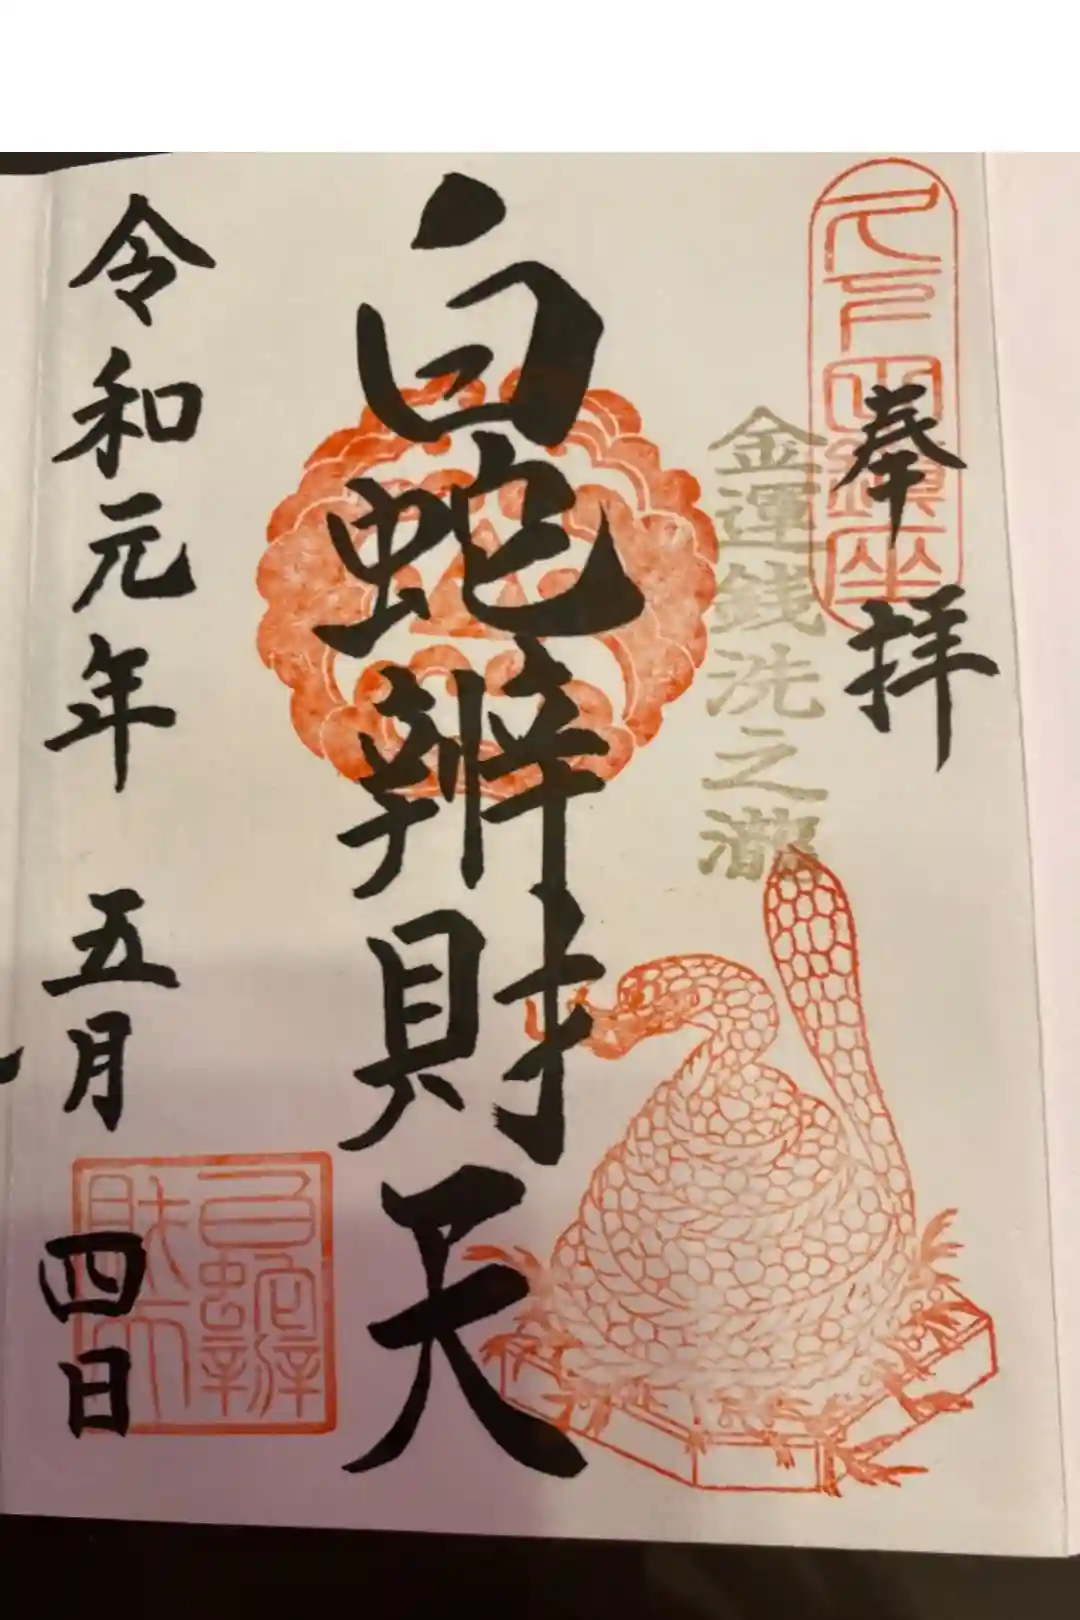 久下田鎮座
奉拝
金運銭洗之瀧
白蛇辨財天
令和元年 五月 四日
白蛇辨
財天